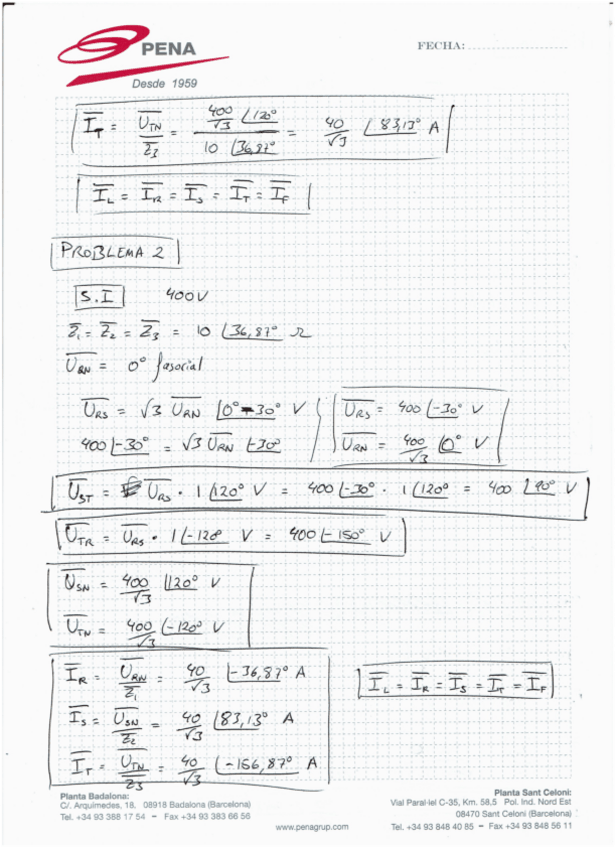 PENA
Desde 1959
FECHA:
I̅_T = U̅_TN / Z̅_3 = (400/√3 ∠120°) / (10 ∠36,87°) = 40/√3 ∠83,13° A
I̅_L = I̅_R = I̅_S = I̅_T = I̅_F
PROBLEMA 2
S.I 400V
Z̅_1 = Z̅_2 = Z̅_3 = 10 ∠36,87° Ω
U̅_RN = 0° fasorial
U̅_RS = √3 U̅_RN ∠0°-30° V U̅_RS = 400 ∠-30° V
400 ∠-30° = √3 U̅_RN ∠-30° U̅_RN = 400/√3 ∠0° V
U̅_ST = U̅_RS · 1 ∠120° V = 400 ∠-30° · 1 ∠120° = 400 ∠90° V
U̅_TR = U̅_RS · 1 ∠-120° V = 400 ∠-150° V
U̅_SN = 400/√3 ∠120° V
U̅_TN = 400/√3 ∠-120° V
I̅_R = U̅_RN / Z̅_1 = 40/√3 ∠-36,87° A I̅_L = I̅_R = I̅_S = I̅_T = I̅_F
I̅_S = U̅_SN / Z̅_2 = 40/√3 ∠83,13° A
I̅_T = U̅_TN / Z̅_3 = 40/√3 ∠-156,87° A
Planta Badalona:
C/. Arquimedes, 18, 08918 Badalona (Barcelona)
Tel. +34 93 388 17 54 - Fax +34 93 383 66 56
www.penagrup.com
Planta Sant Celoni:
Vial Paral·lel C-35, Km. 58,5 Pol. Ind. Nord Est
08470 Sant Celoni (Barcelona)
Tel. +34 93 848 40 85 - Fax +34 93 848 56 11